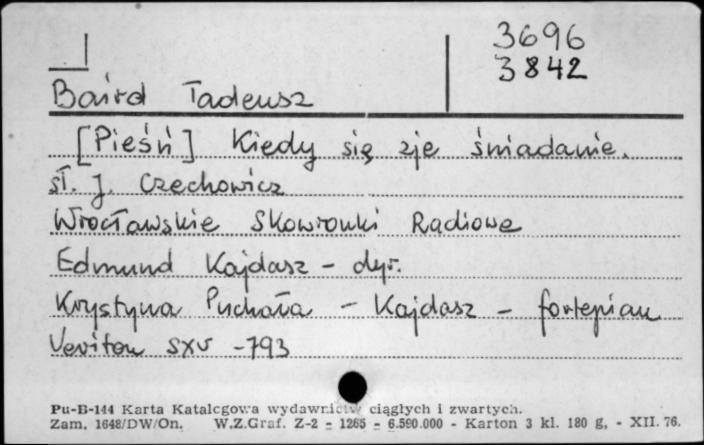 3696
3842
Baird Tadeusz
[Pieśń] Kiedy się zje śniadanie.
sł. J. Czechowicz
Wrocławskie Skowronki Radiowe
Edmund Kajdasz - dyr.
Krystyna Puchała - Kajdasz - fortepian
Veriton SXV -793
Pu-B-144 Karta Katalogowa wydawnictw ciągłych i zwartych.
Zam. 1648/DW/On. W.Z.Graf. Z-2 - 1265 - 6.590.000 - Karton 3 kl. 180 g, - XII. 76.